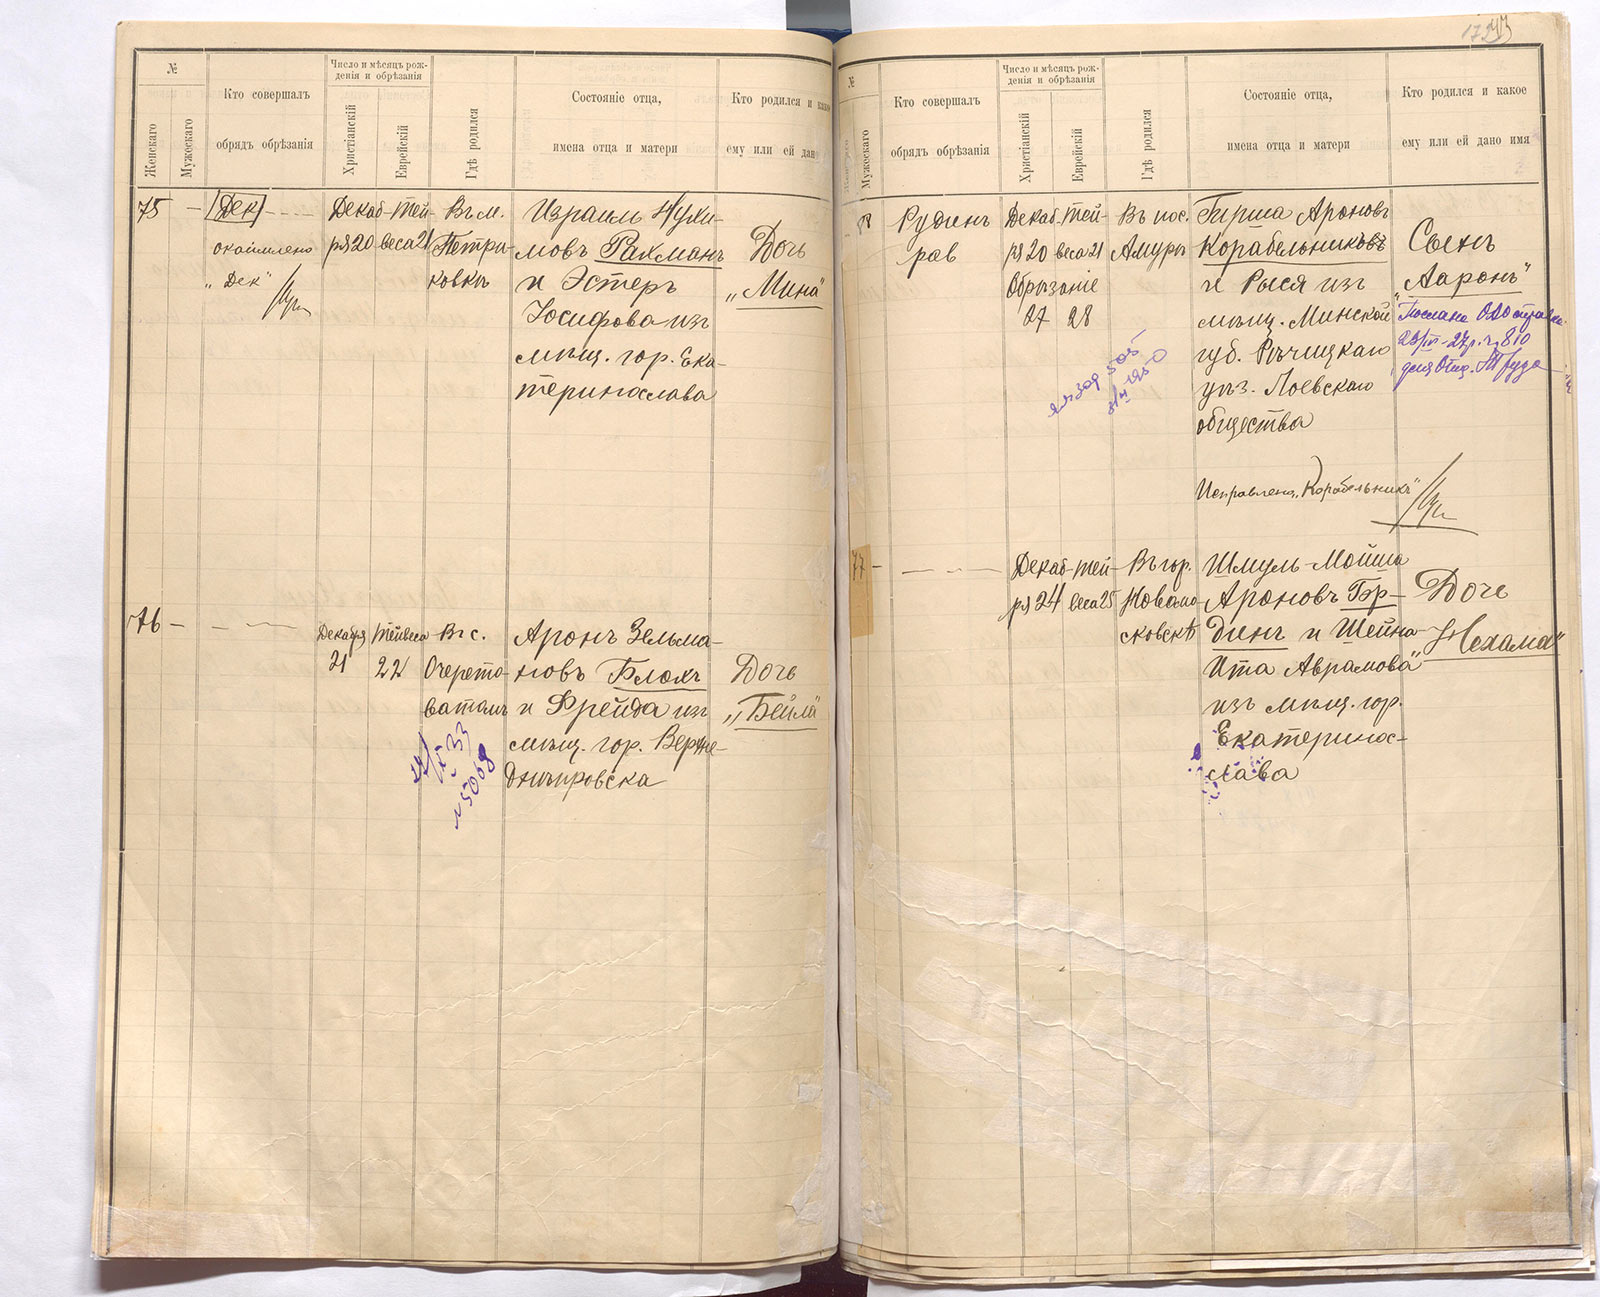 №
Женскаго
Мужескаго
Кто совершалъ
обрядъ обрѣзанія
Число и мѣсяцъ рож-
денія и обрѣзанія
Христіанскій
Еврейскій
Гдѣ родился
Состояніе отца,
имена отца и матери
Кто родился и какое
ему или ей дано
75
Дек
окаймлено
„Дек"
Декаб-
ря 20
Тей-
веса 21
Въ м.
Петри-
ковкѣ
Израиль Нухи-
мовъ Рахманъ
и Эстеръ
Іосифова изъ
мѣщ. гор. Ека-
теринослава
Дочь
„Мина"
76
Декабря
21
Тейвеса
22
Въ с.
Очерето-
ватомъ
Аронъ Зельма-
новъ Блохъ
и Фрейда изъ
мѣщ. гор. Верхне-
днѣпровска
Дочь
„Бейла"
33
№ 5068
№
Мужескаго
Кто совершалъ
обрядъ обрѣзанія
Число и мѣсяцъ рож-
денія и обрѣзанія
Христіанскій
Еврейскій
Гдѣ родился
Состояніе отца,
имена отца и матери
Кто родился и какое
ему или ей дано имя
Рудинъ
рав
Декаб-
ря 20
Тей-
веса 21
Обрѣзаніе
27 28
Въ пос.
Амуръ
Гирша Ароновъ
Корабельниковъ
и Рыся изъ
мѣщ. Минской
губ. Рѣчицкаго
уѣз. Лоевскаго
общества
Сынъ
„Ааронъ"
Исправлено „Корабельникъ"
77
Декаб-
ря 24
Тей-
веса 25
Въ гор.
Новомо-
сковскѣ
Шмуль-Мойша
Ароновъ Гор-
динъ и Шейна
Ита Аврамова
изъ мѣщ. гор.
Екатерино-
слава
Дочь
„Нехама"